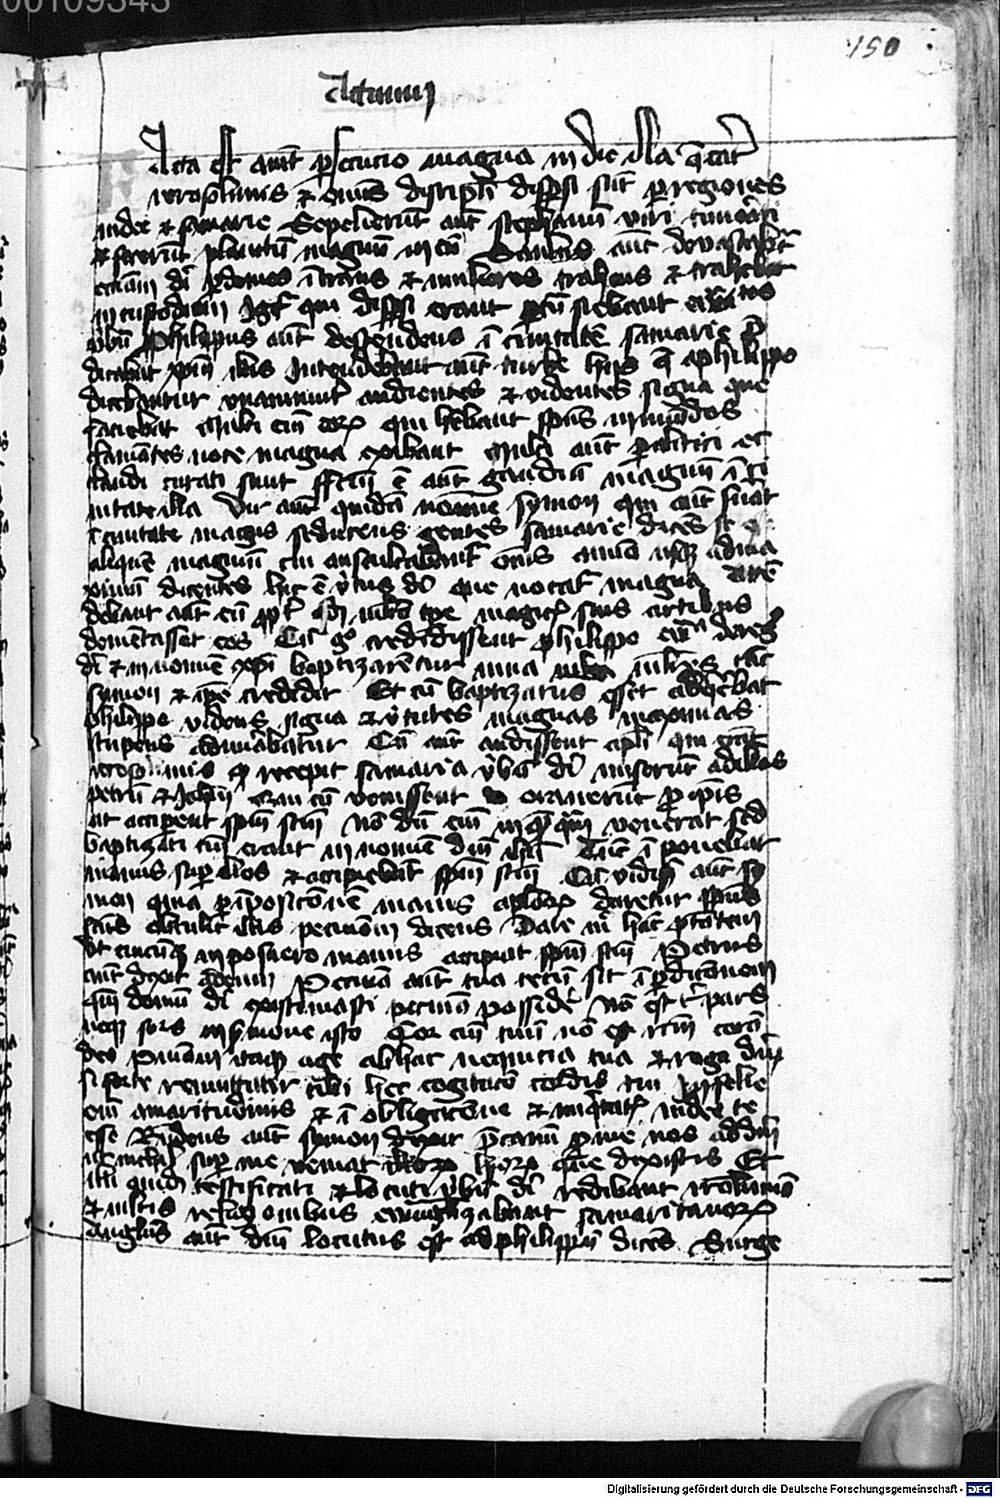 00109343
150
Actuum
Acta est autem persecucio magna in die illa que erat
ierosolimis et omnes discipuli dispersi sunt per regiones
iudee et samarie Sepelierunt autem stephanum viri timorati
et fecerunt planctum magnum in eum Saulus autem devastabat
domos intrans et mulieres trahens et trahebat
in custodiam Igitur qui dispersi erant pertransiebant
verbum Philippus autem descendens in civitatem samarie
dicabat christum illis Intendebant autem turbe hiis que a philippo
dicebantur unanimiter audientes et videntes signa que
faciebat Multi enim eorum qui habebant spiritus inmundos
clamantes voce magna exibant Multi autem paralitici et
claudi curati sunt factum est autem gaudium magnum in ci
uitate illa Vir autem quidam nomine symon qui ante fuerat
in civitate magus seducens gentes samarie dicens se
aliquem magnum cui auscultabant omnes a minimo usque ad ma
ximum dicentes hic est virtus dei que vocatur magna Atten
debant autem eum propter quod multo tempore magicis suis artibus
dementasset eos Cum ergo credidissent philippo de reg
dei et in nomine christi baptizarentur mulieres tunc
symon et ipse credidit Et cum baptizatus esset adherebat
philippo videns signa et virtutes magnas maximas
stupens admirabatur Cum autem audissent apostoli qui erant
ierosolimis quod recepit samaria verbum dei miserunt ad illos
petrum et Johannem Qui cum venissent oraverunt pro ipsis
ut acciperent spiritum sanctum Non dum enim in quemquam venerat sed
baptizati tantum erant in nomine domini ihesu Tunc inponebant
manus super illos et accipiebant spiritum sanctum Cum vidisset autem sy
mon quia per inposicionem manus apostolorum daretur spiritus
sanctus obtulit illis pecuniam dicens Date mihi hanc potestatem
ut cuicumque inposuero manus accipiat spiritum sanctum Petrus
autem dixit ad eum Pecunia autem tua tecum sit in perdicionem
quoniam donum dei existimasti pecunia possideri Non est tibi pars
neque sors in sermone isto Cor enim tuum non est rectum coram
deo Penitenciam itaque age ab hac nequicia tua et roga deum
si forte remittatur tibi hec cogitacio cordis tui In felle
enim amaritudinis et in obligacione et iniquitatis video te
esse Respondens autem symon dixit Precamini pro me vos ad dominum
ut nichil super me veniat illorum horum que dixistis Et
illi quidem testificati et locuti verbum dei redibant ierosolimam
et multis regionibus ewangelizabant samaritanorum
Angelus autem domini locutus est ad philippum dicens Surge
Digitalisierung gefördert durch die Deutsche Forschungsgemeinschaft - DFG